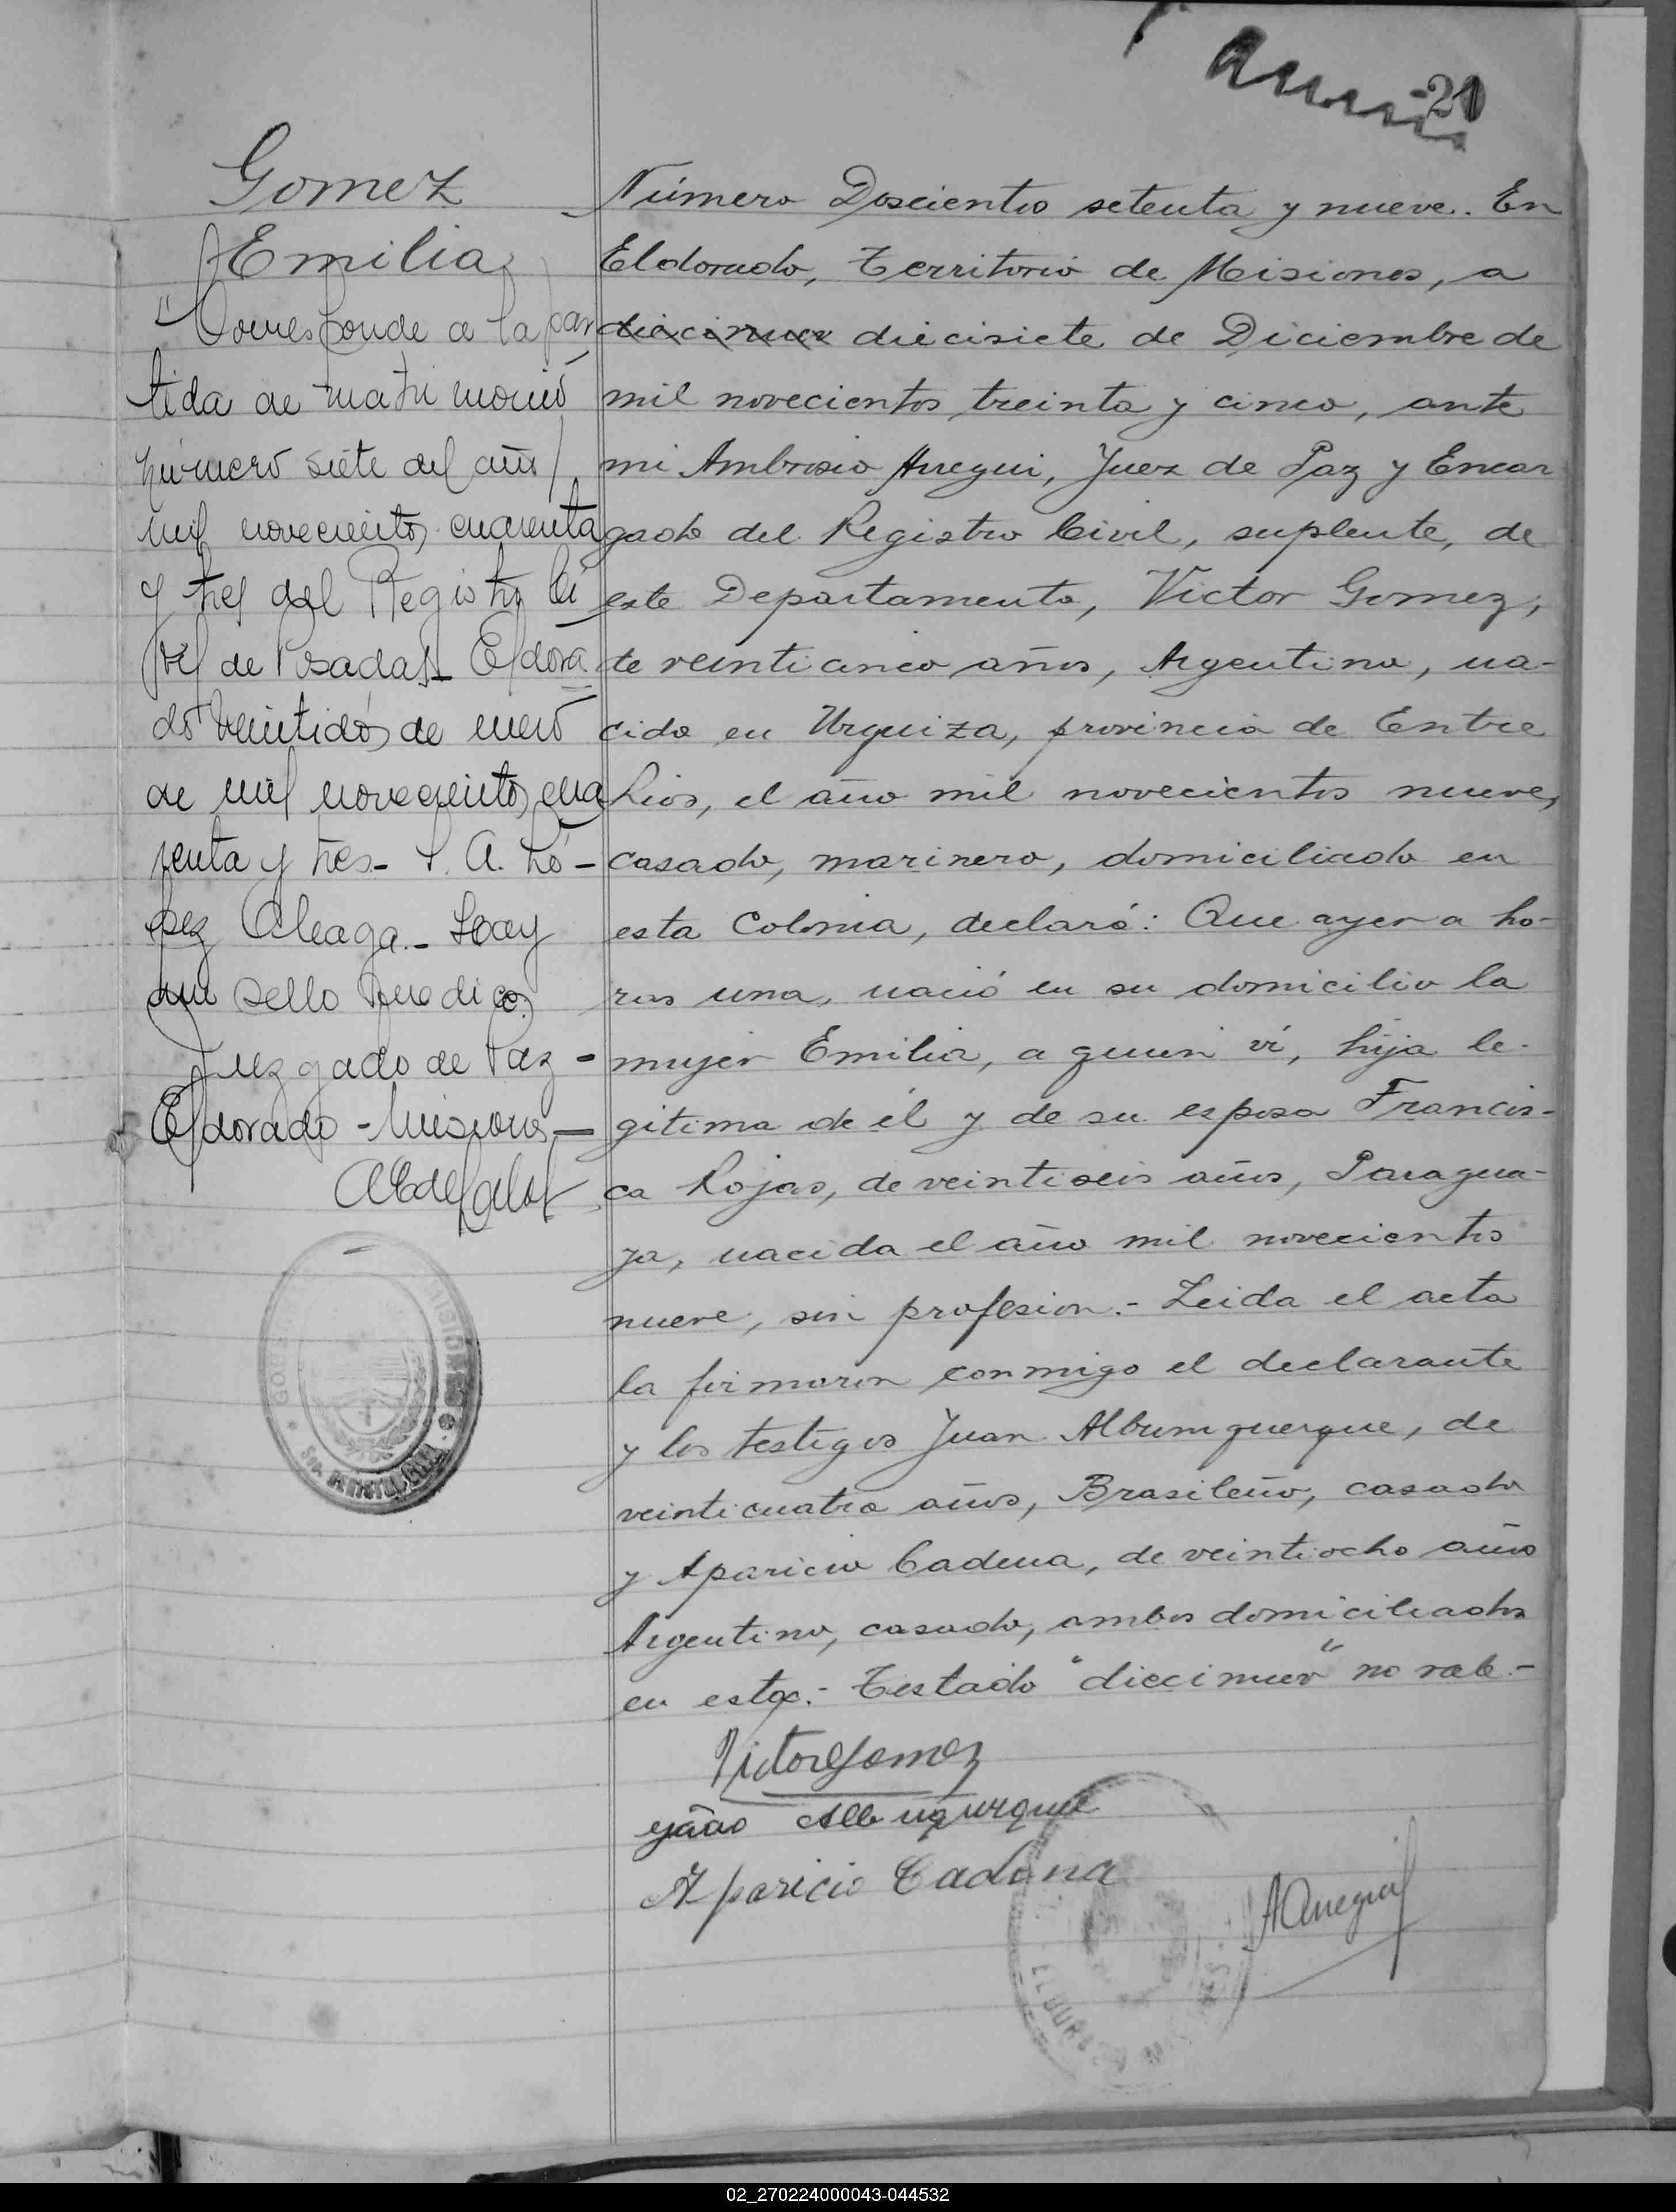 21
Gomez
Emilia
"Corresponde a la par
tida de matrimonio
número siete del año
mil novecientos cuarenta
y tres del Registro Ci
vil de Posadas_ Eldora
do veintidós de enero
de mil novecientos cua
renta y tres_ A. Ló-
pez Aleaga._ Hay
un sello que dice:
Juzgado de Paz -
Eldorado - Misiones_
Número Doscientos setenta y nueve. En
Eldorado, Territorio de Misiones, a
diecinuev diecisiete de Diciembre de
mil novecientos treinta y cinco, ante
mi Ambrosio Arregui, Juez de Paz y Encar
gado del Registro Civil, suplente, de
este Departamento, Victor Gomez,
de veinticinco años, Argentino, na-
cido en Urquiza, provincia de Entre
Rios, el año mil novecientos nueve,
casado, marinero, domiciliado en
esta Colonia, declaró: Que ayer a ho-
ras una, nació en su domicilio la
mujer Emilia, a quien ví, hija le-
gitima de él y de su esposa Francis-
ca Rojas, de veintiseis años, Paragua-
ya, nacida el año mil novecientos
nueve, sin profesion.- Leida el acta
la firmaron conmigo el declarante
y los testigos Juan Albumquerque, de
veinticuatro años, Brasileño, casado
y Aparicio Cadena, de veintiocho años
Argentino, casado, ambos domiciliados
en esta.- Testado "diecinuev" no vale.-
Victor Gomez
João Albuqurque
Aparicio Cadena
AArregui
MISIONES
ELDORADO
02_270224000043-044532